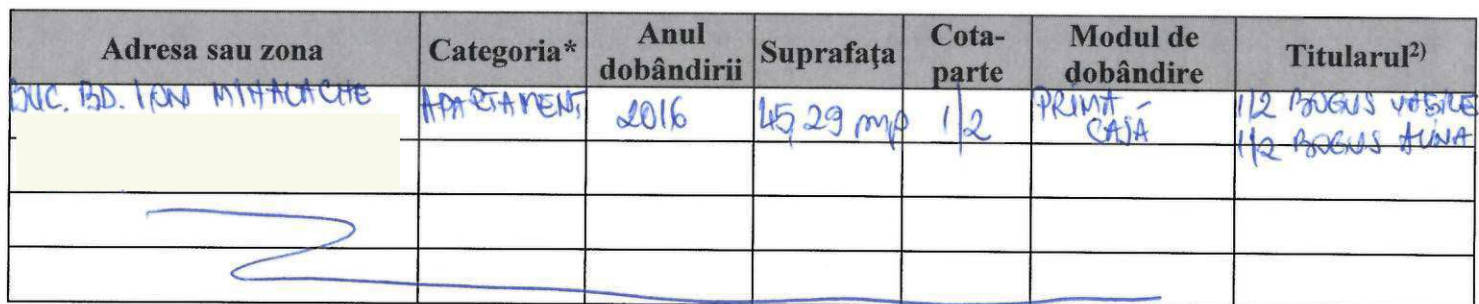 Adresa sau zona Categoria* Anul dobândirii Suprafaţa Cota-parte Modul de dobândire Titularul2)
BUC. BD. ION MIHALACHE APARTAMENT 2016 45,29 mp 1/2 PRIMA - CASA 1/2 BOGUS VASILE
1/2 BOGUS ALINA